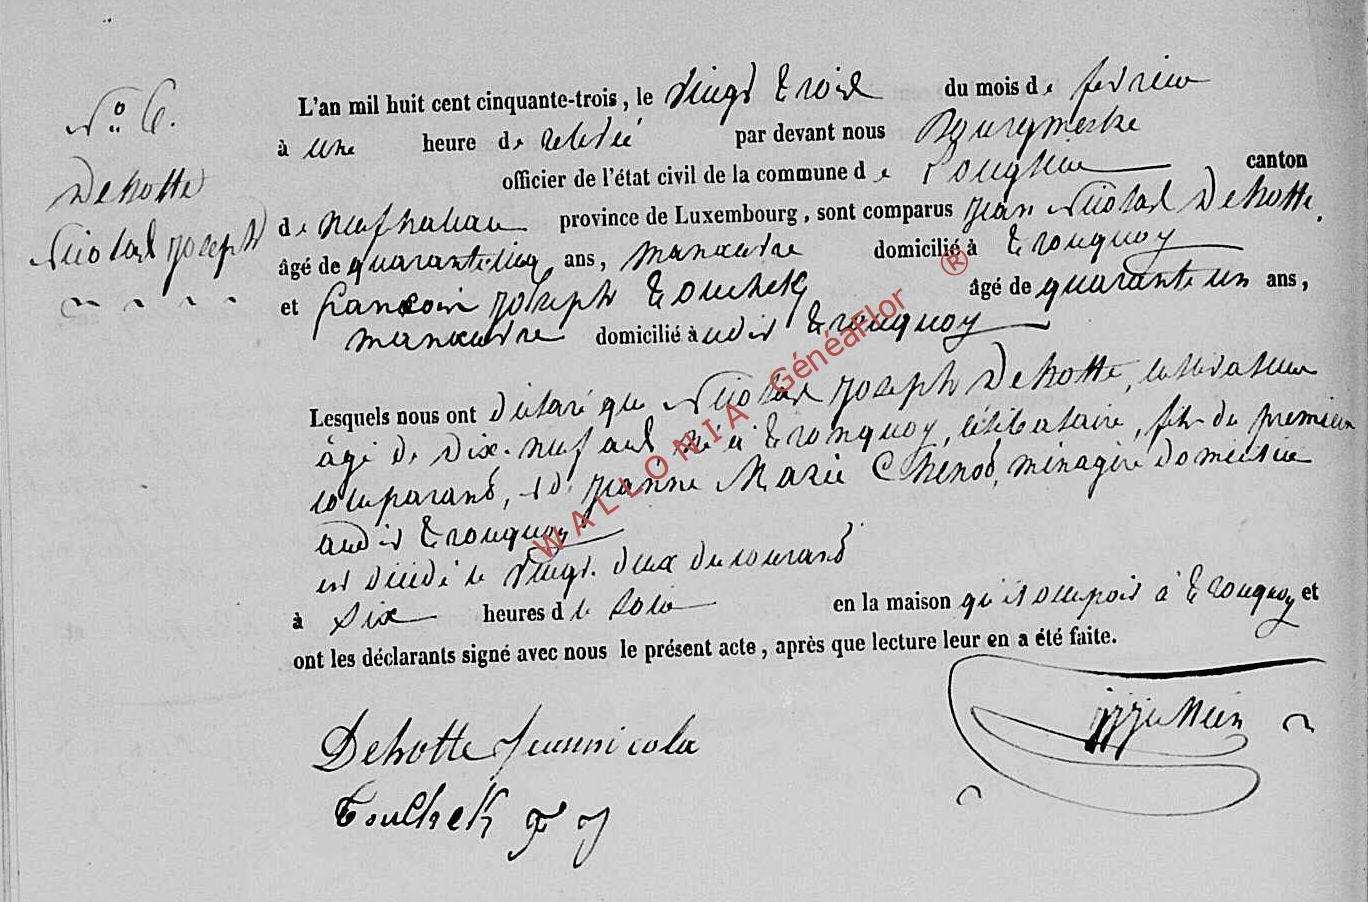 N.º 6.
Dehotte
Nicolas Joseph
L'an mil huit cent cinquante-trois, le vingt trois du mois de fevrier
à une heure de relevée par devant nous Bourgmestre
officier de l'état civil de la commune de canton
de Neufchateau province de Luxembourg, sont comparus Jean Nicolas Dehotte,
âgé de quarante-cinq ans, manœuvre domicilié à Tronquoy
et François Joseph Touchek âgé de quarante un ans,
manœuvre domicilié à udit Tronquoy
Lesquels nous ont déclaré que Nicolas Joseph Dehotte, cultivateur
âgé de dix-neuf ans, né à Tronquoy, célibataire, fils du premier
comparant, et Jeanne Marie Chenot, ménagère domiciliée
audit Tronquoy
est décédé le vingt-deux du courant
à six heures du soir en la maison qu'il occupoit à Tronquoy et
ont les déclarants signé avec nous le présent acte, après que lecture leur en a été faite.
Dehotte Jeannicola
Touchek F J
WALLONIA GénéaFlor ®